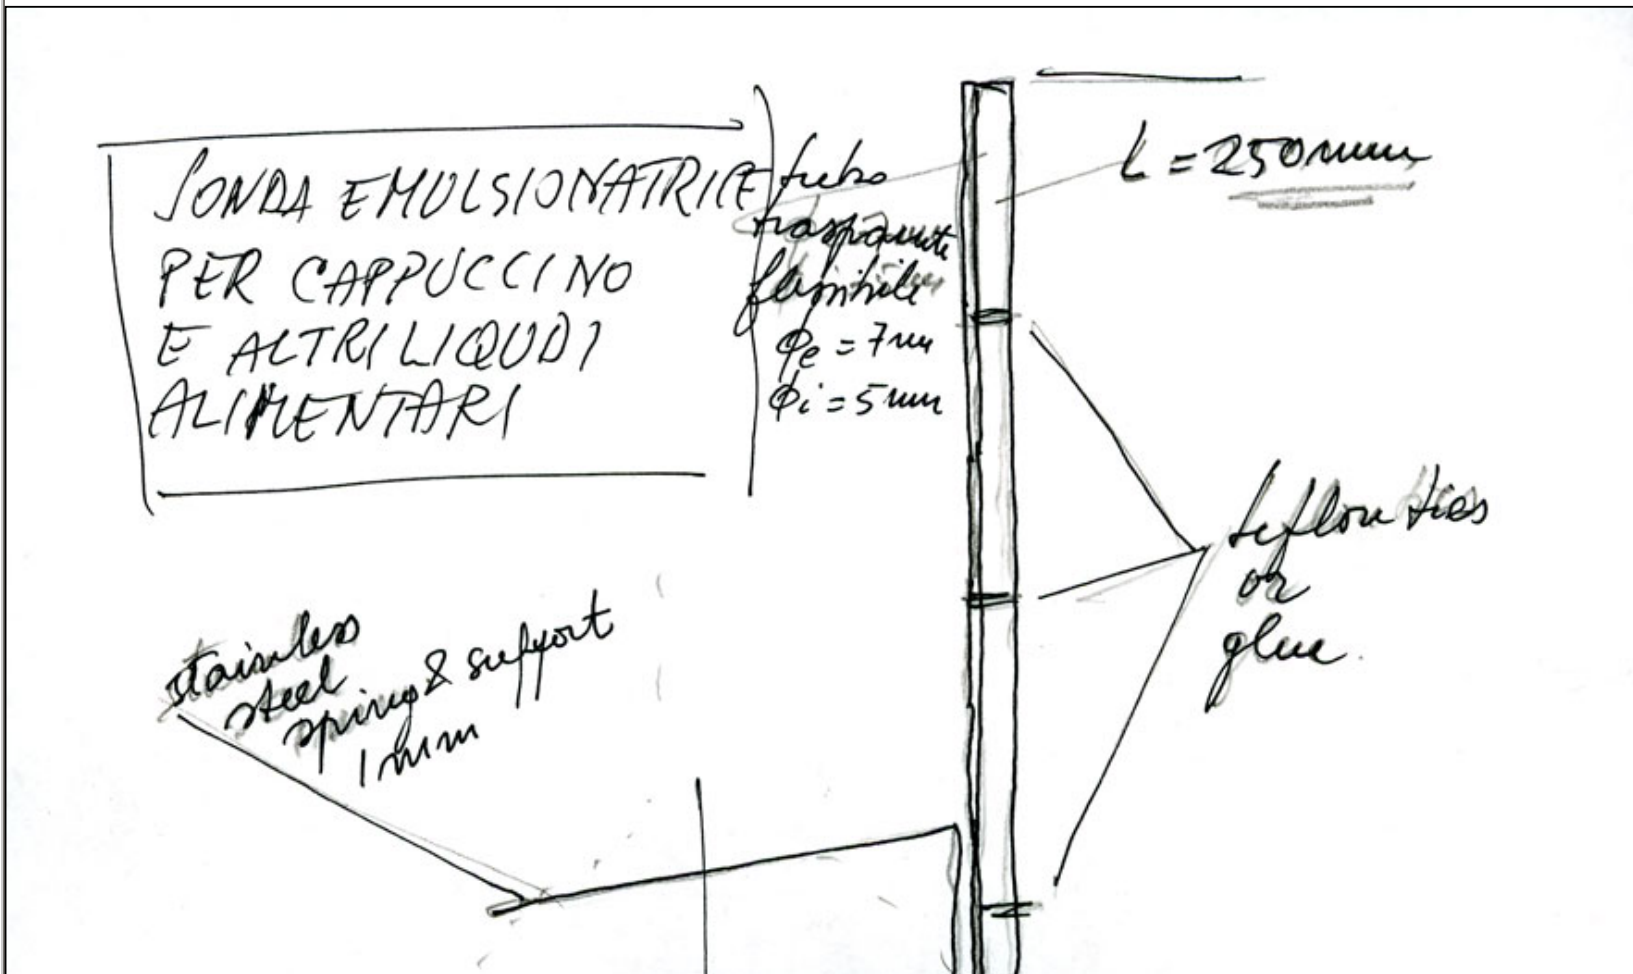 SONDA EMULSIONATRICE
PER CAPPUCCINO
E ALTRI LIQUIDI
ALIMENTARI
tubo
trasparente
flessibile
φe = 7mm
φi = 5mm
L = 250mm
teflon ties
or
glue.
stainless
steel
spring & support
1mm